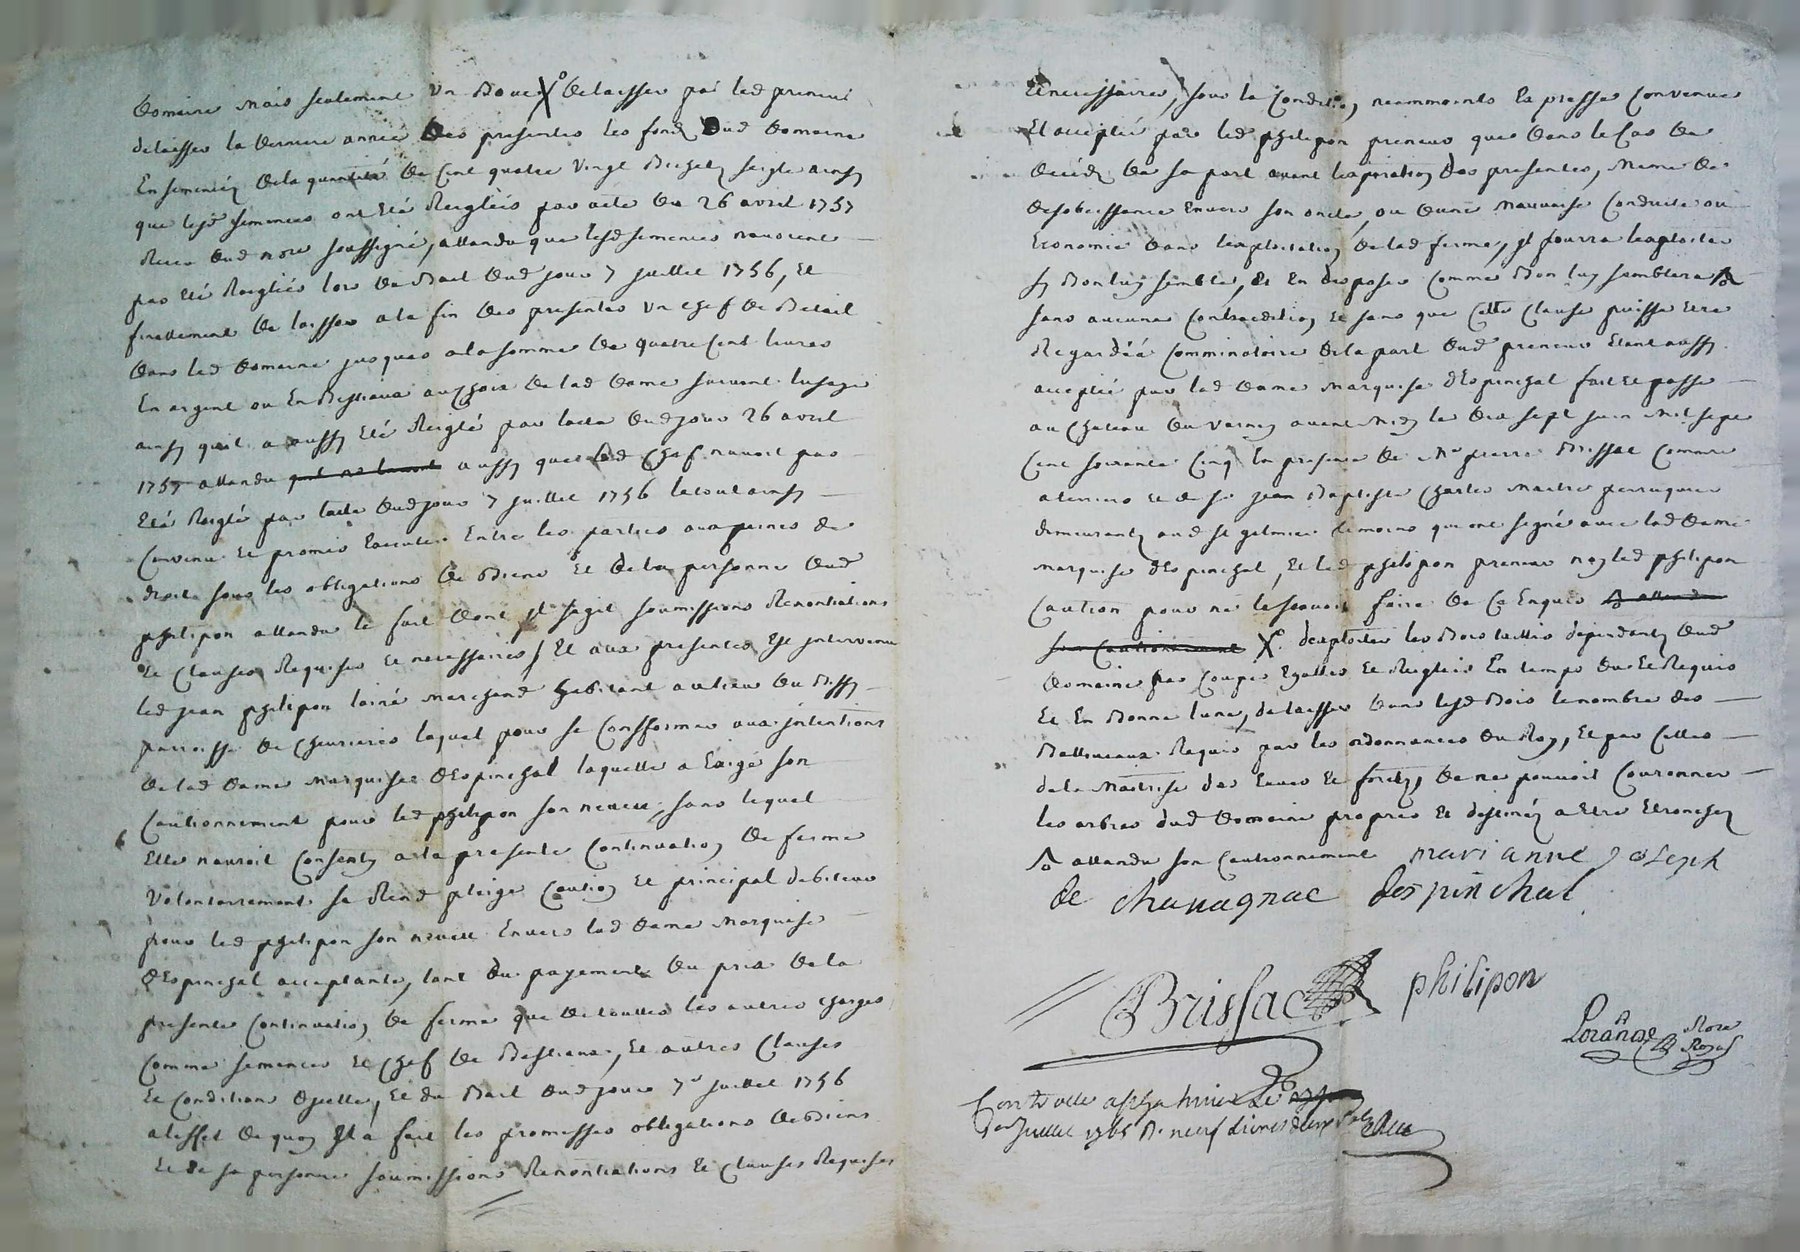 Domaine mais seulement un Boeuf X° delaisser par led preneur
delaisser la derniere année des presentes les fonds dud Domaine
Ensemencés dela quantité de Cent quatre vingt Bichets seigle ainsy
que lesd semences ont Eté Reiglées par acte du 26 avril 1757
Receu dud nore soussigné, attandu que lesd semences navoient
pas Eté Reiglées lors du Bail dud jour 7 juillet 1756, Et
finallement de laisser ala fin des presentes un chef de Betail
dans led Domaine jusques ala somme de quatre Cent livres
En argent ou En Bestiaux au choix de lad Dame suivant lusage
ainsy quil a aussy Eté Reiglé par lacte dud jour 26 avril
1757 attandu aussy que led chef navoit pas
Eté Reiglé par lacte dud jour 7 juillet 1756 letout ainsy
Convenu Et promis Executer Entre les parties aux peines de
droit sous les obligations de Biens Et de la personne dud
philipon attandu le fait dont jl sagit soumissions Renontiations
Et Clauses Requises Et necessaires / Et aux presentes Est jntervenu
led jean philipon lainé marchand habitant au lieu du Bissy
parroisse de laquel pour se Consformer aux jntentions
de lad dame Marquise dEspinchal laquelle a Exigé son
Cautionnement pour led philipon son neveu, sans lequel
Elle nauroit Consenty ala presente Continuation de ferme
volontairement se Rend pleige Caution Et principal debiteur
pour led philipon son neveu Envers lad dame Marquise
dEspinchal acceptante, tant du payement du prix de la
presente Continuation de ferme que de touttes les autres charges
Comme semences Et chef de Bestiaux, Et autres Clauses
Et Conditions dycelle, Et du Bail dud jour 7e juillet 1756
a leffet de quoy Il a fait les promesses obligations de Biens
Et de sa personne soumissions Renontiations Et Clauses Requises
Et necessaires, sous la Condition neammoints Expresse Convenue
Et acceptée par led philipon preneur que dans le Cas de
deceds de sa part avant lexpiration des presentes, Meme de
desobeissance Envers son oncle, ou dune mauvaise Conduite ou
Economie dans lexploitation de lad ferme, jl pourra lexploiter
sy Bon luy semble, Et En disposer Comme Bon luy semblera
sans aucune Contradition Et sans que Cette Clause puisse Etre
Regardéé Comminatoire dela part dud preneur Etant aussy
acceptée par lad Dame Marquise dEspinchal fait Et passé
au Chateau du Vernet avant Midy le dix sept juin Mil sept
Cent soixante Cinq En presence de Mre pierre Brissac Commre
a terriers Et de sr jean Baptiste Charles Maitre perruquier
demeurants aud st gelmier temoins qui ont signé avec lad dame
Marquise dEspinchal, Et led philipon preneur non led philipon
Caution pour ne lescavoir faire de Ce Enquis
X° dexploiter les Bois taillis dependants dud
Domaine par Coupes Egalles Et Reiglées En temps du Et Requis
Et En Bonne lune, delaisser dans lesd Bois le nombre des
Balliveaux Requis par les ordonnances du Roy, Et par Celles
de la Maitrise des Eaux Et forets, de ne pouvoir Couronner
les arbres dud Domaine propres Et destinés a Etre Etronchés
attandu son Cautionnement marianne joseph
de chavagnac despinchal
Brissac philipon
Nore
Royal
Controllé a st galmier Le
Juillet 1765 R neuf livres deux sols